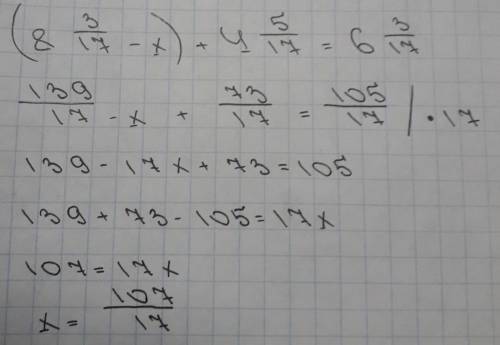 (8 3/17 - x) + 4 5/17 = 6 3/17
139/17 - x + 73/17 = 105/17 | · 17
139 - 17x + 73 = 105
139 + 73 - 105 = 17x
107 = 17x
x = 107/17